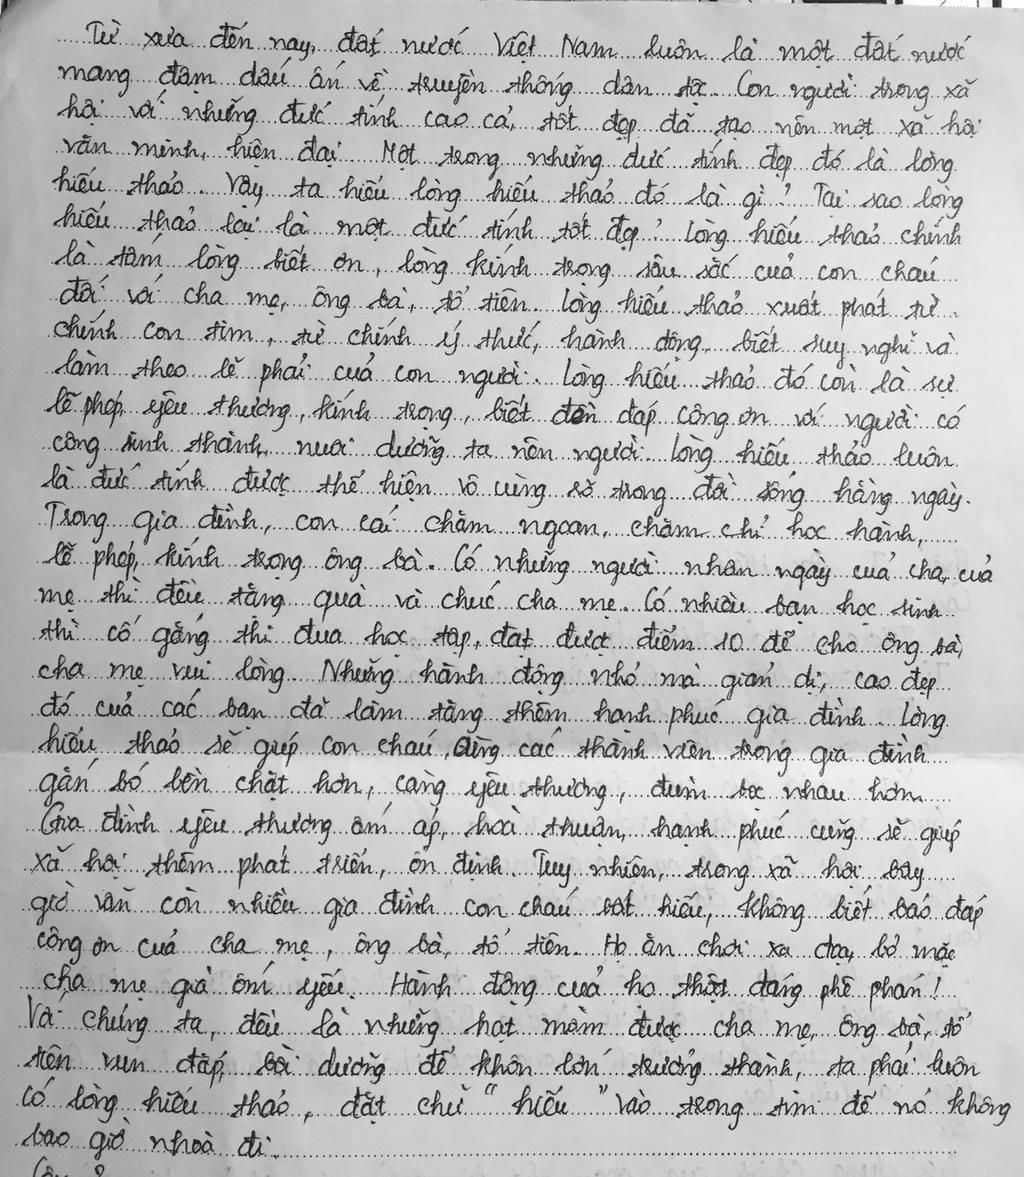 Từ xưa đến nay, đất nước Việt Nam luôn là một đất nước
mang đậm dấu ấn về truyền thống dân tộc. Con người trong xã
hội với những đức tính cao cả, tốt đẹp đã tạo nên một xã hội
văn minh, hiện đại. Một trong những đức tính đẹp đó là lòng
hiếu thảo. Vậy ta hiểu lòng hiếu thảo đó là gì? Tại sao lòng
hiếu thảo lại là một đức tính tốt đẹp? Lòng hiếu thảo chính
là tấm lòng biết ơn, lòng kính trọng sâu sắc của con cháu
đối với cha mẹ, ông bà, tổ tiên. Lòng hiếu thảo xuất phát từ
chính con tim, từ chính ý thức, hành động, biết suy nghĩ và
làm theo lẽ phải của con người. Lòng hiếu thảo đó còn là sự
lễ phép, yêu thương, kính trọng, biết đền đáp công ơn với người có
công sinh thành, nuôi dưỡng ta nên người. Lòng hiếu thảo luôn
là đức tính được thể hiện vô cùng rõ trong đời sống hằng ngày.
Trong gia đình, con cái chăm ngoan, chăm chỉ học hành,
lễ phép, kính trọng ông bà. Có những người nhân ngày của cha, của
mẹ thì đều tặng quà và chúc cha mẹ. Có nhiều bạn học sinh
thì cố gắng thi đua học tập, đạt được điểm 10 để cho ông bà,
cha mẹ vui lòng. Những hành động nhỏ mà giản dị, cao đẹp
đó của các bạn đã làm tăng thêm hạnh phúc gia đình. Lòng
hiếu thảo sẽ giúp con cháu, cùng các thành viên trong gia đình
gắn bó bền chặt hơn, càng yêu thương, đùm bọc nhau hơn.
Gia đình yêu thương ấm áp, hoà thuận, hạnh phúc cũng sẽ giúp
xã hội thêm phát triển, ổn định. Tuy nhiên, trong xã hội bây
giờ vẫn còn nhiều gia đình con cháu bất hiếu, không biết báo đáp
công ơn của cha mẹ, ông bà, tổ tiên. Họ ăn chơi xa đoạ, bỏ mặc
cha mẹ già ốm yếu. Hành động của họ thật đáng phê phán!
Với chúng ta, đều là những hạt mầm được cha mẹ, ông bà, tổ
tiên vun đắp, bồi dưỡng để khôn lớn trưởng thành, ta phải luôn
có lòng hiếu thảo, đặt chữ "hiếu" vào trong tim để nó không
bao giờ nhoà đi.